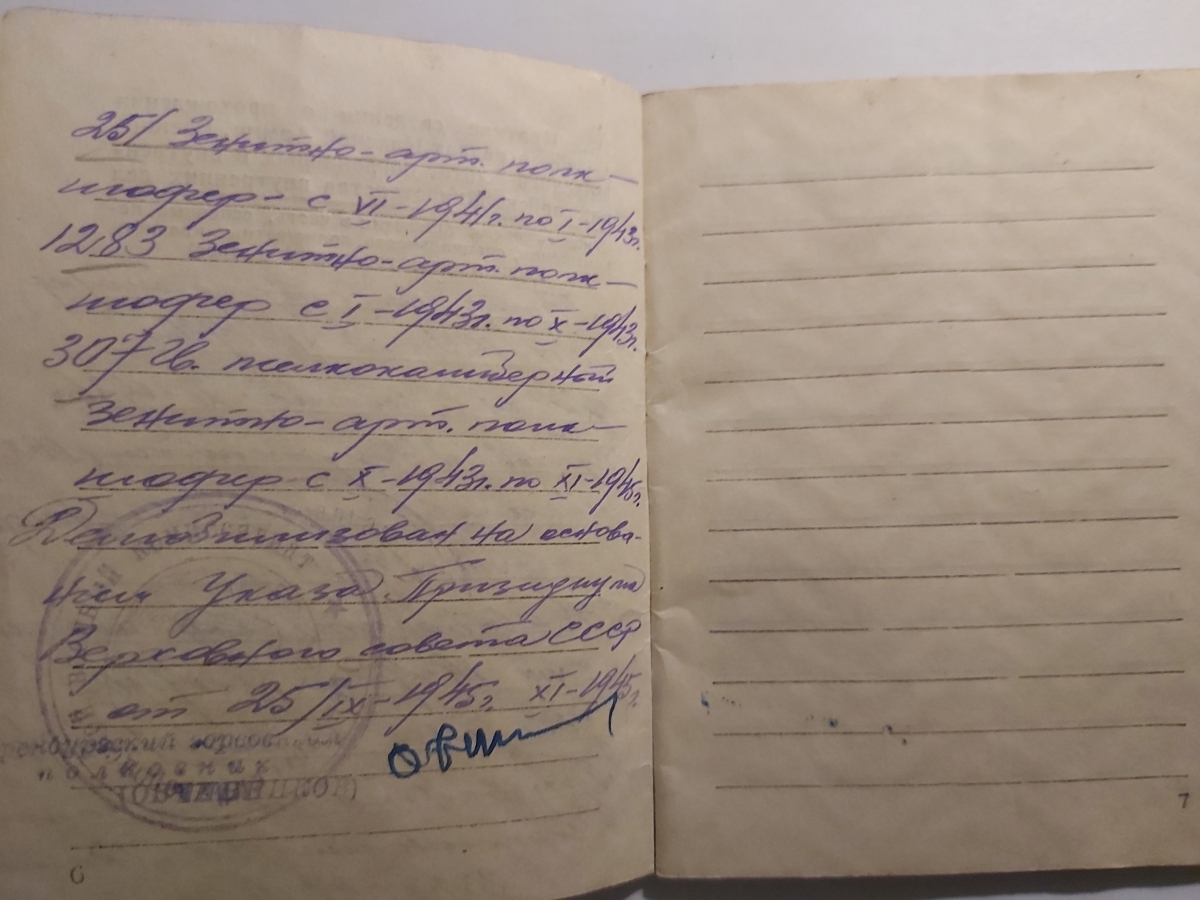 251 Зенитно-арт. полк —
шофер - с VI-1941г. по I-1943г.
1283 Зенитно-арт. полк —
шофер с I-1943г. по X-1943г.
307 Гв. мелкокалиберный
зенитно-арт. полк —
шофер с X-1943г. по XI-1945г.
Демобилизован на основа-
нии Указа Призидиума
Верховного совета СССР
от 25/IX-1945г. XI-1945г.
полковник
6
7